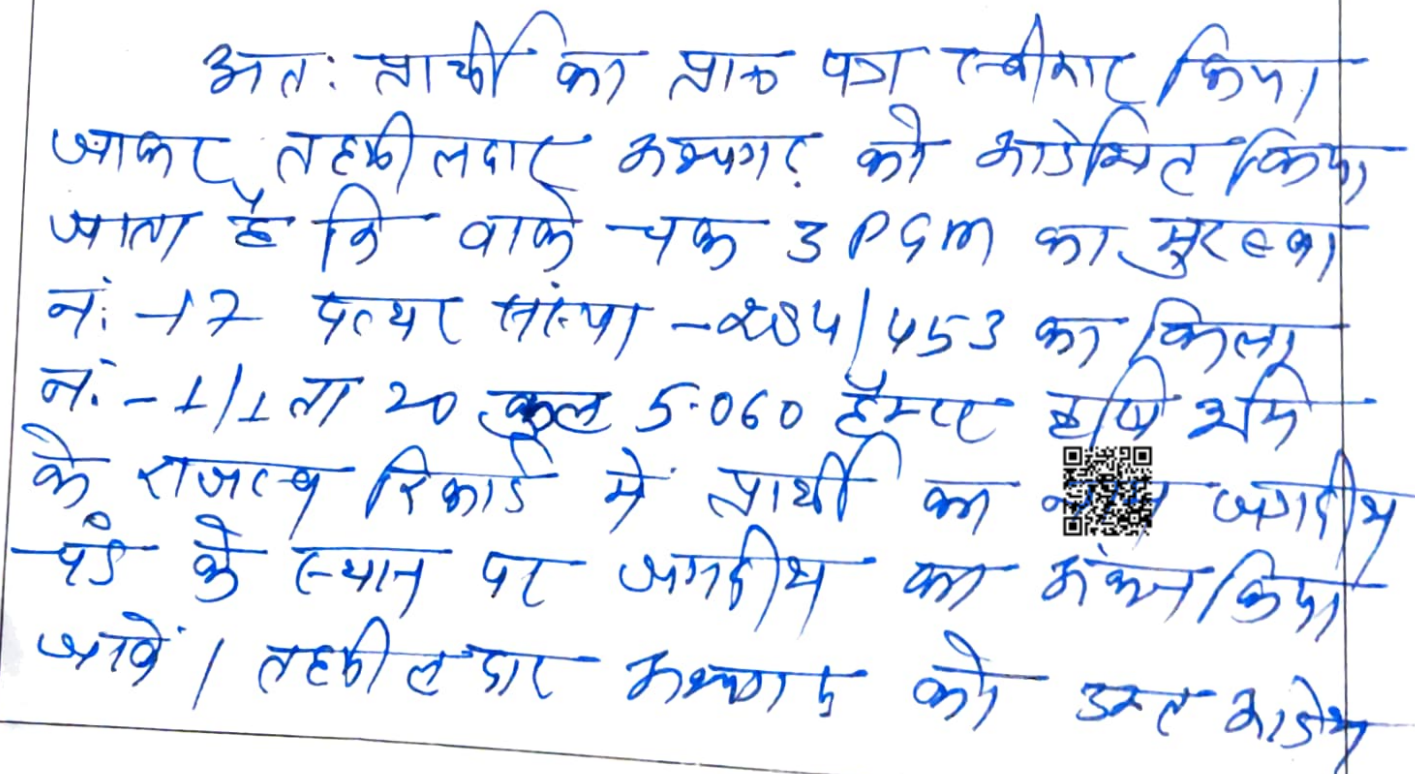 अतः प्रार्थी का प्रा० पत्र स्वीकार किया
जाकर तहसीलदार अनूपगढ़ को आदेशित किया
जाता है कि वाके चक 3 PGM का मुरब्बा
नं. -17 पत्थर संख्या -284/453 का किला
नं. -1/1 ता 20 कुल 5.060 हैक्टर कृषि भूमि
के राजस्व रिकार्ड में प्रार्थी का नाम जगदीश
चंद्र के स्थान पर जगदीश का अंकन किया
जावें। तहसीलदार अनूपगढ़ को उक्त आदेश